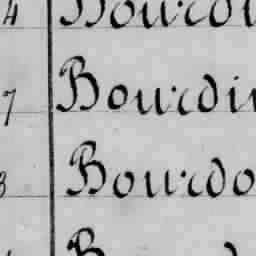 4 Bourdi
7 Bourdin
3 Bourdo